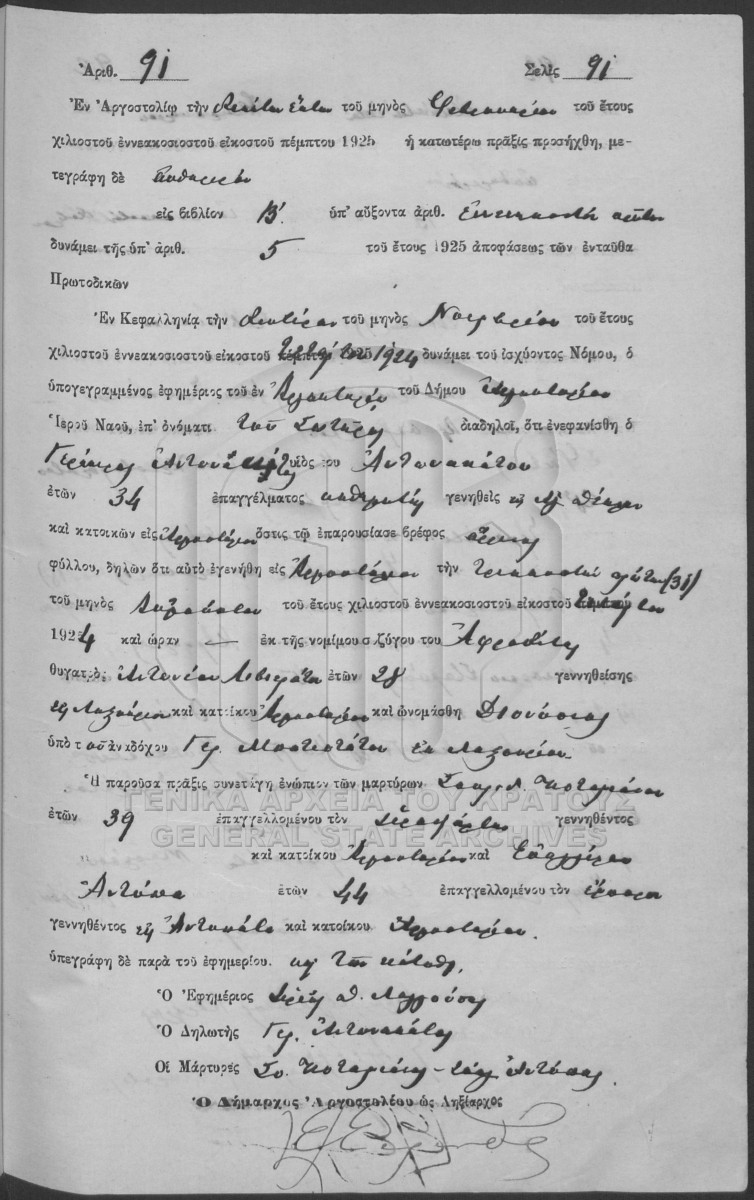 Ἀριθ. 91 Σελὶς 91
Ἐν Ἀργοστολίῳ τὴν δεκάτην ἕκτην τοῦ μηνὸς Φεβρουαρίου τοῦ ἔτους
χιλιοστοῦ ἐννεακοσιοστοῦ εἰκοστοῦ πέμπτου 1925 ἡ κατωτέρω πρᾶξις προσήχθη, με-
τεγράφη δὲ αὐθημερόν
εἰς βιβλίον Β΄. ὑπ' αὔξοντα ἀριθ. ἐνενηκοστὸν πρῶτον
δυνάμει τῆς ὑπ' ἀριθ. 5 τοῦ ἔτους 1925 ἀποφάσεως τῶν ἐνταῦθα
Πρωτοδικῶν
Ἐν Κεφαλληνίᾳ τὴν δευτέραν τοῦ μηνὸς Νοεμβρίου τοῦ ἔτους
χιλιοστοῦ ἐννεακοσιοστοῦ εἰκοστοῦ τετάρτου 1924 δυνάμει τοῦ ἰσχύοντος Νόμου, ὁ
ὑπογεγραμμένος ἐφημέριος τοῦ ἐν Ἀργοστολίῳ τοῦ Δήμου Ἀργοστολίου
Ἱεροῦ Ναοῦ, ἐπ' ὀνόματι τοῦ Σωτῆρος διαδηλοῖ, ὅτι ἐνεφανίσθη ὁ
Γεράσιμος Ἀντωνακᾶτος υἱὸς του Ἀντωνακάτου
ἐτῶν 34 ἐπαγγέλματος καθηγητής γενηθεὶς
καὶ κατοικῶν εἰς Ἀργοστόλιον ὅστις τῷ ἐπαρουσίασε βρέφος ἄρρενος
φύλλου, δηλῶν ὅτι αὐτὸ ἐγενήθη εἰς Ἀργοστόλιον τὴν τριακοστὴν πρώτην (31)
τοῦ μηνὸς Αὐγούστου τοῦ ἔτους χιλιοστοῦ ἐννεακοσιοστοῦ εἰκοστοῦ τετάρτου
1924 καὶ ὥραν — ἐκ τῆς νομίμου συζύγου του Ἀφροδίτης
θυγατρὸς Ἀντωνίου ἐτῶν 28 γεννηθείσης
ἐν Ληξούριον καὶ κατοίκου Ἀργοστολίου καὶ ὠνομάσθη Διονύσιος
ὑπὸ τοῦ ἀναδόχου Γερ. ἐκ Ληξουρίου.
Ἡ παροῦσα πρᾶξις συνετάγη ἐνώπιον τῶν μαρτύρων
ἐτῶν 39 ἐπαγγελλομένου τὸν γεννηθέντος
„ καὶ κατοίκου Ἀργοστολίου καὶ Εὐαγγέλου
Ἀντύπα ἐτῶν 44 ἐπαγγελλομένου τὸν ἔμπορον
γεννηθέντος καὶ κατοίκου Ἀργοστολίου.
ὑπεγράφη δὲ παρὰ τοῦ ἐφημερίου.
Ὁ Ἐφημέριος
Ὁ Δηλωτὴς Γερ. Ἀντωνακᾶτος
Οἱ Μάρτυρες
Ὁ Δήμαρχος Ἀργοστολίου ὡς Ληξίαρχος
ΓΕΝΙΚΑ ΑΡΧΕΙΑ ΤΟΥ ΚΡΑΤΟΥΣ
GENERAL STATE ARCHIVES